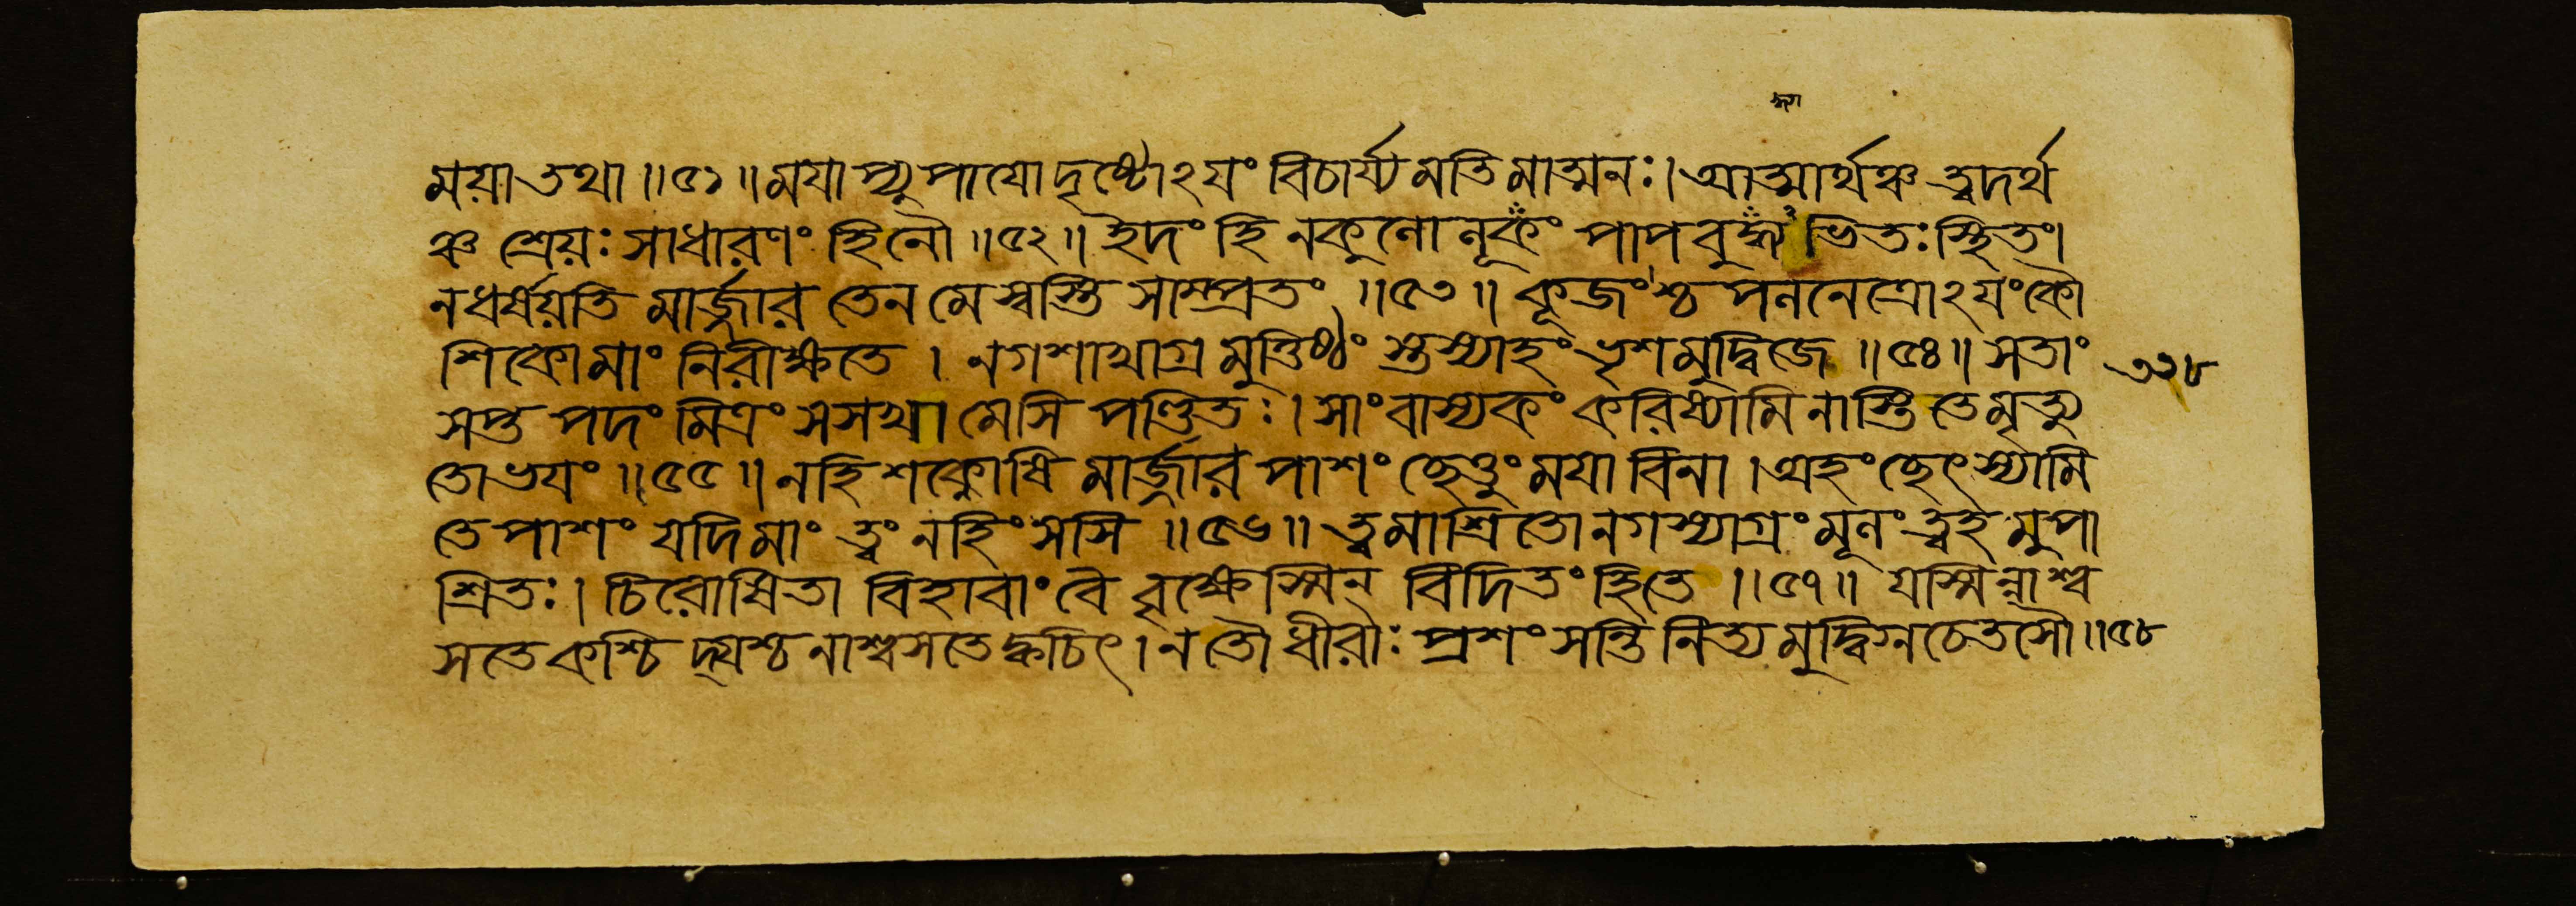 ময়া তথা ॥৫১॥ ময়াপ্যুপাযো দৃষ্টোঽযং বিচার্য্য মতিমাত্মনঃ। আত্মার্থঞ্চ ত্বদর্থ
ঞ্চ শ্রেয়ঃ সাধারণং হি নৌ ॥৫২॥ ইদং হি নকুলোলূকং পাপবুদ্ধ্যাভিতঃ স্থিতং।
ন ধর্ষয়তি মার্জ্জার তেন মে স্বস্তি সাম্প্রতং ॥৫৩॥ কূজংশ্চপলনেত্রোঽযং কৌ
শিকো মাং নিরীক্ষতে। নগশাখাগ্রমুত্তিষ্ঠং স্তস্যাহং ভৃশমুদ্বিজে ॥৫৪॥ সতাং
৩১৮
সপ্তপদং মিত্রং স সখা মেসি পণ্ডিতঃ। সাংবাস্যকং করিষ্যামি নাস্তি তে মৃত্যু
তো ভযং ॥৫৫॥ নহি শক্নোষি মার্জ্জার পাশং ছেত্তুং ময়া বিনা। অহং ছেৎস্যামি
তে পাশং যদি মাং ত্বং ন হিংসসি ॥৫৬॥ ত্বমাশ্রিতো নগস্যাগ্রং মূলং ত্বহমুপা
শ্রিতঃ। চিরোষিতা বিহাবাং বৈ বৃক্ষেস্মিন্ বিদিতং হি তে ॥৫৭॥ যস্মিন্নাশ্ব
সতে কশ্চিদ্যশ্চ নাশ্বসতে ক্বচিৎ। ন তৌ ধীরাঃ প্রশংসন্তি নিত্যমুদ্বিগ্নচেতসৌ॥৫৮